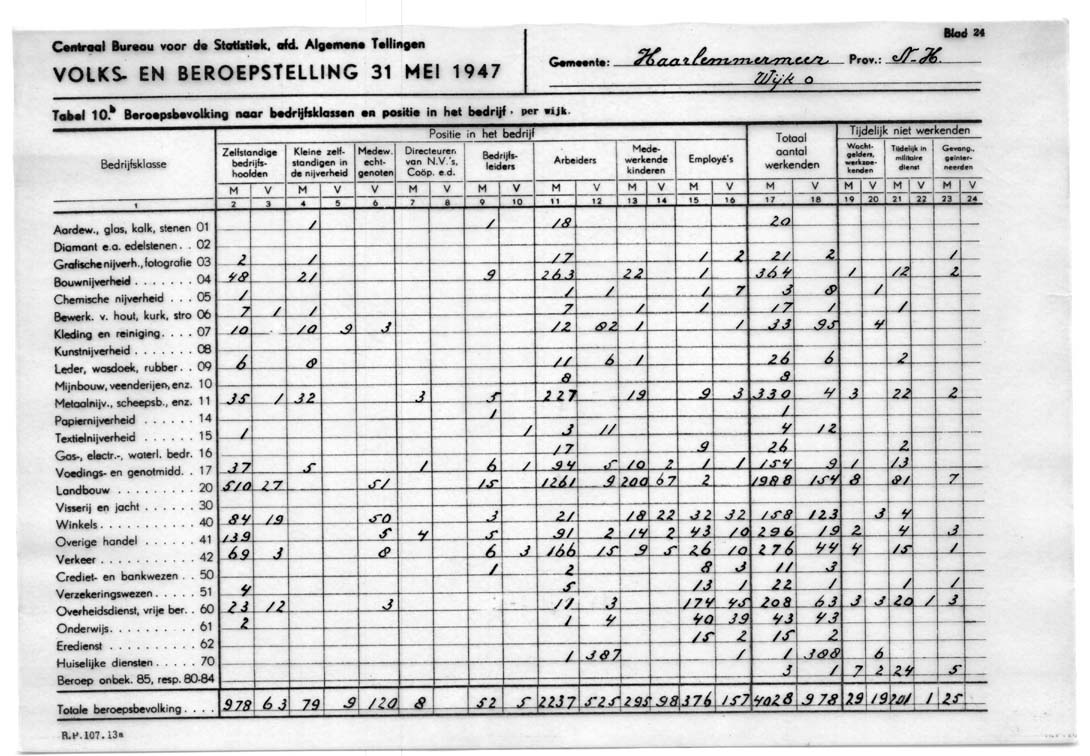 Centraal Bureau voor de Statistiek, afd. Algemene Tellingen
VOLKS- EN BEROEPSTELLING 31 MEI 1947
Blad 24
Gemeente: Haarlemmermeer Prov.: N-H.
Wijk o
Tabel 10.b Beroepsbevolking naar bedrijfsklassen en positie in het bedrijf, per wijk.
Bedrijfsklasse
Positie in het bedrijf
Zelfstandige bedrijfs- hoofden
Kleine zelf- standigen in de nijverheid
Medew. echt- genoten
Directeuren van N.V.'s, Coöp. e.d.
Bedrijfs- leiders
Arbeiders
Mede- werkende kinderen
Employé's
Totaal aantal werkenden
Tijdelijk niet werkenden
Wacht- gelders, werkzoe- kenden
Tijdelijk in militaire dienst
Gevang., geinter- neerden
M V M V V M V M V M V M V M V M V M V M V M V
1 2 3 4 5 6 7 8 9 10 11 12 13 14 15 16 17 18 19 20 21 22 23 24
Aardew., glas, kalk, stenen 01 1 1 18 20
Diamant e.a. edelstenen . . 02
Grafische nijverh., fotografie 03 2 1 17 1 2 21 2 1
Bouwnijverheid . . . . . . 04 48 21 9 263 22 1 364 1 12 2
Chemische nijverheid . . . 05 1 1 1 1 7 3 8 1
Bewerk. v. hout, kurk, stro 06 7 1 1 7 1 1 17 1 1
Kleding en reiniging . . . . 07 10 10 9 3 12 82 1 1 33 95 4
Kunstnijverheid . . . . . . 08
Leder, wasdoek, rubber . . 09 6 8 11 6 1 26 6 2
Mijnbouw, veenderijen, enz. 10 8 8
Metaalnijv., scheepsb., enz. 11 35 1 32 3 5 227 19 9 3 330 4 3 22 2
Papiernijverheid . . . . . 14 1 1
Textielnijverheid . . . . . 15 1 1 3 11 4 12
Gas-, electr.-, waterl. bedr. 16 17 9 26 2
Voedings- en genotmidd. . 17 37 5 1 6 1 94 5 10 2 1 1 154 9 1 13
Landbouw . . . . . . . . 20 510 27 51 15 1261 9 200 67 2 1988 154 8 81 7
Visserij en jacht . . . . . 30
Winkels . . . . . . . . . 40 84 19 50 3 21 18 22 32 32 158 123 3 4
Overige handel . . . . . . 41 139 5 4 5 91 2 14 2 43 10 296 19 2 4 3
Verkeer . . . . . . . . . 42 69 3 8 6 3 166 15 9 5 26 10 276 44 4 15 1
Crediet- en bankwezen . . 50 1 2 8 3 11 3
Verzekeringswezen . . . . 51 4 5 13 1 22 1 1 1
Overheidsdienst, vrije ber. . 60 23 12 3 11 3 174 45 208 63 3 3 20 1 3
Onderwijs . . . . . . . . 61 2 1 4 40 39 43 43
Eredienst . . . . . . . . 62 15 2 15 2
Huiselijke diensten . . . . 70 1 387 1 1 388 6
Beroep onbek. 85, resp. 80-84 3 1 7 2 24 5
Totale beroepsbevolking . . . . 978 63 79 9 120 8 52 5 2237 525 295 98 376 157 4028 978 29 19 201 1 25
R.P. 107.13a